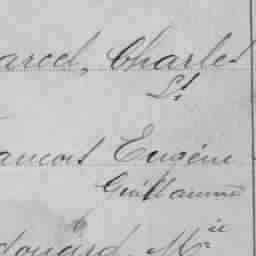 arcel, Charles
St
ancois Eugène
Guillaume
douard, M.ie